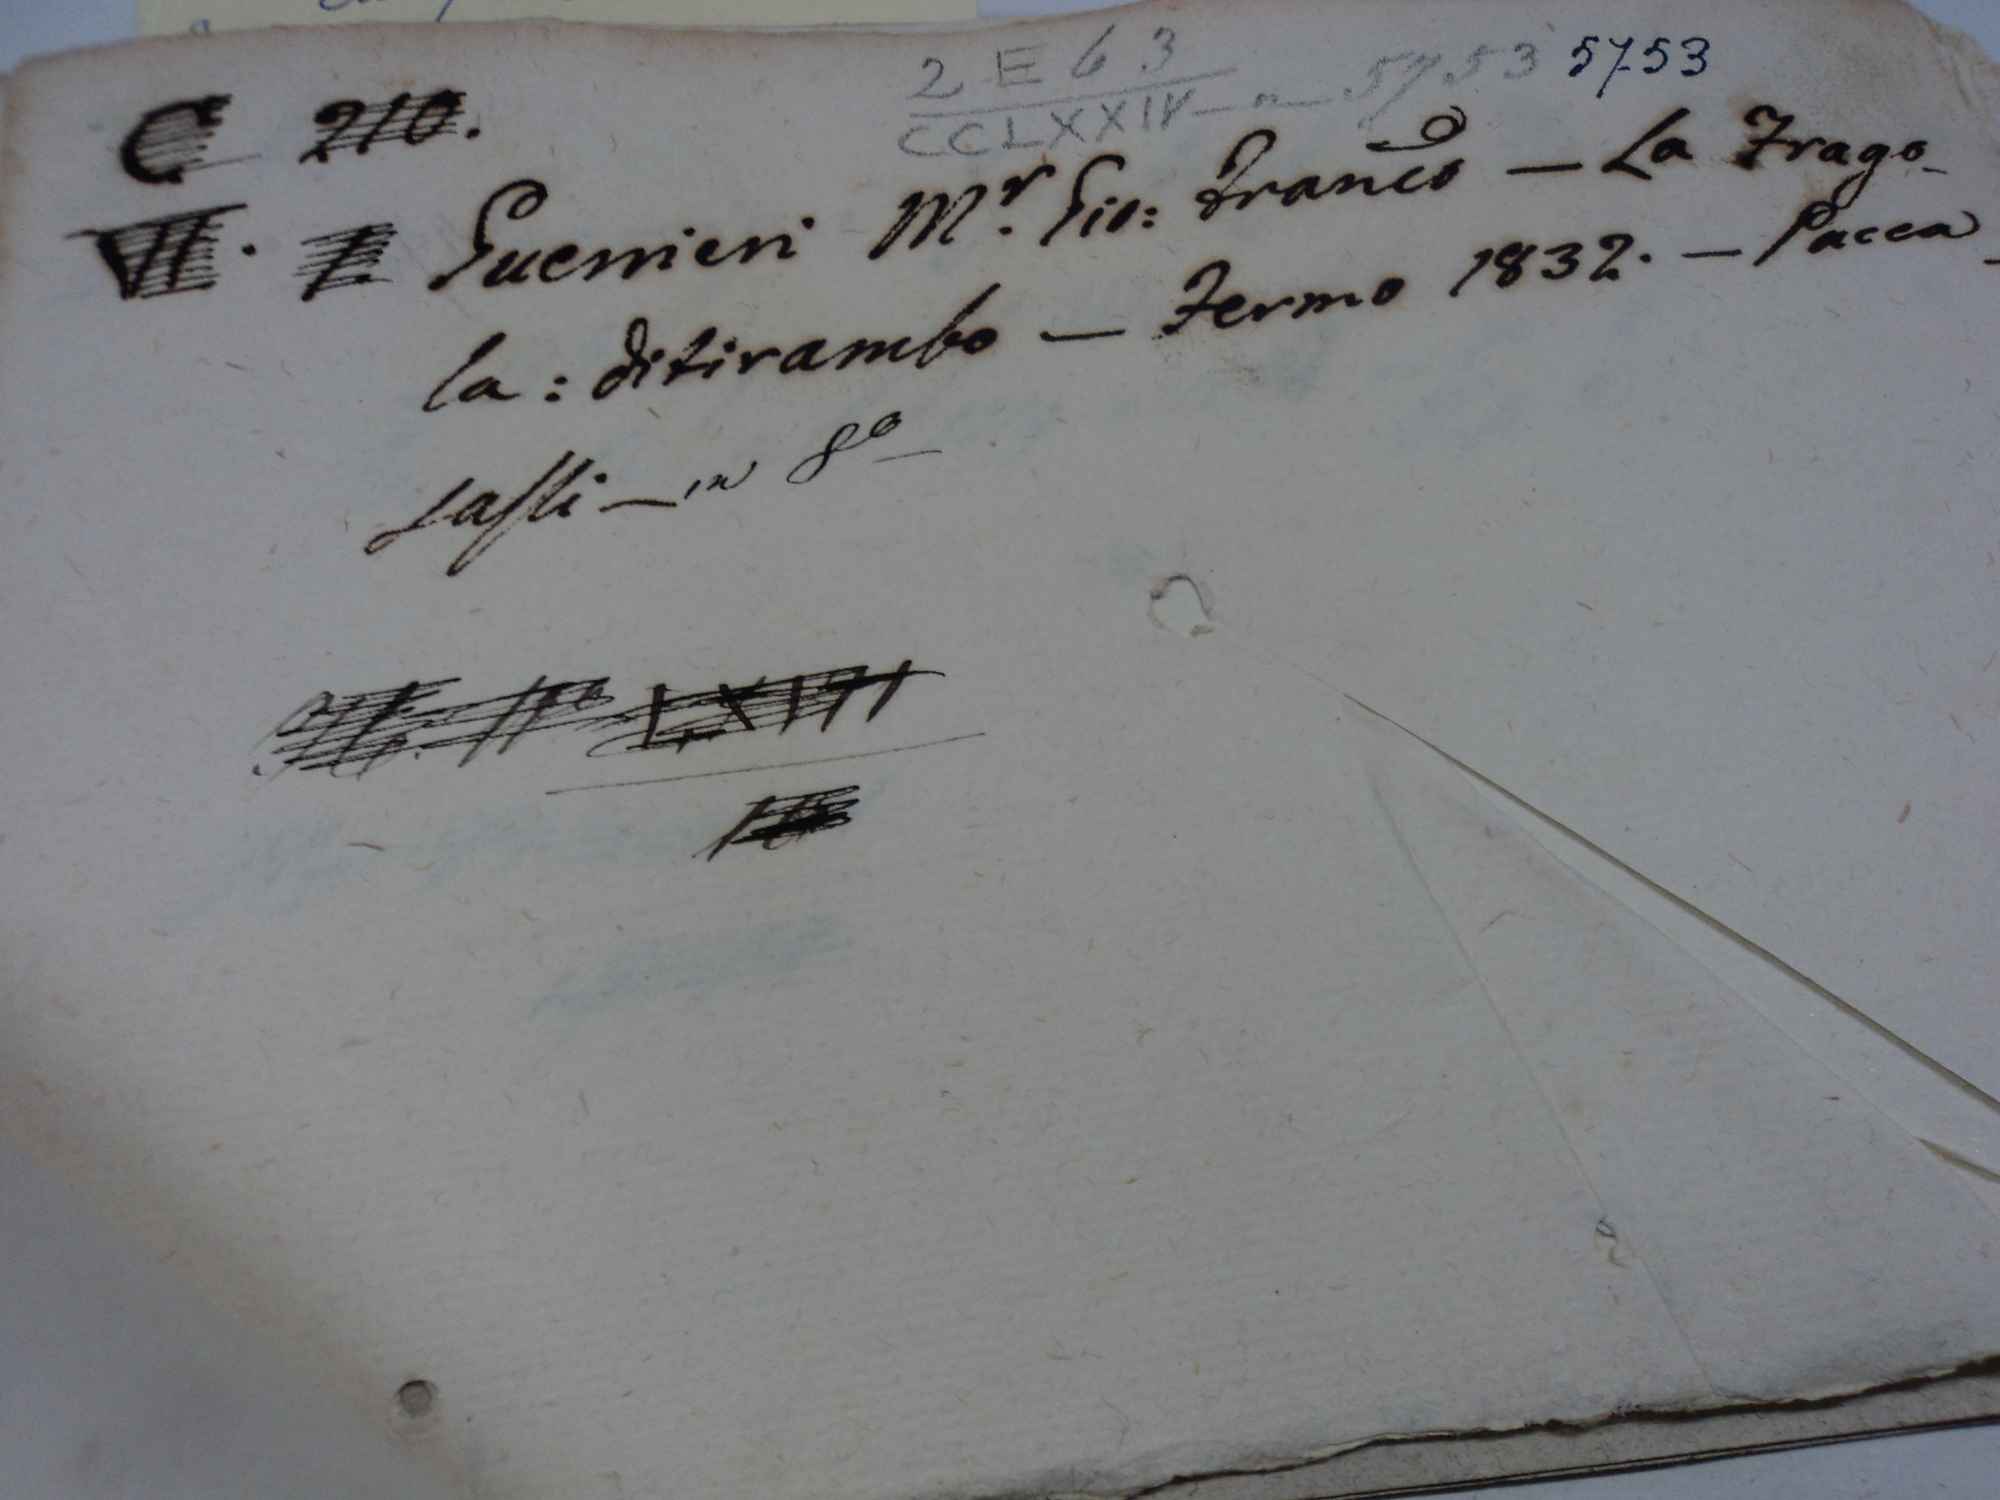 2 E 63
CCLXXIV - n - 5753 5753
C 210.
VII. Guerrieri Mr. Gio: Franco - La Frago-
la: ditirambo - Fermo 1832. - Pacca-
sassi - in 8o
LXIII